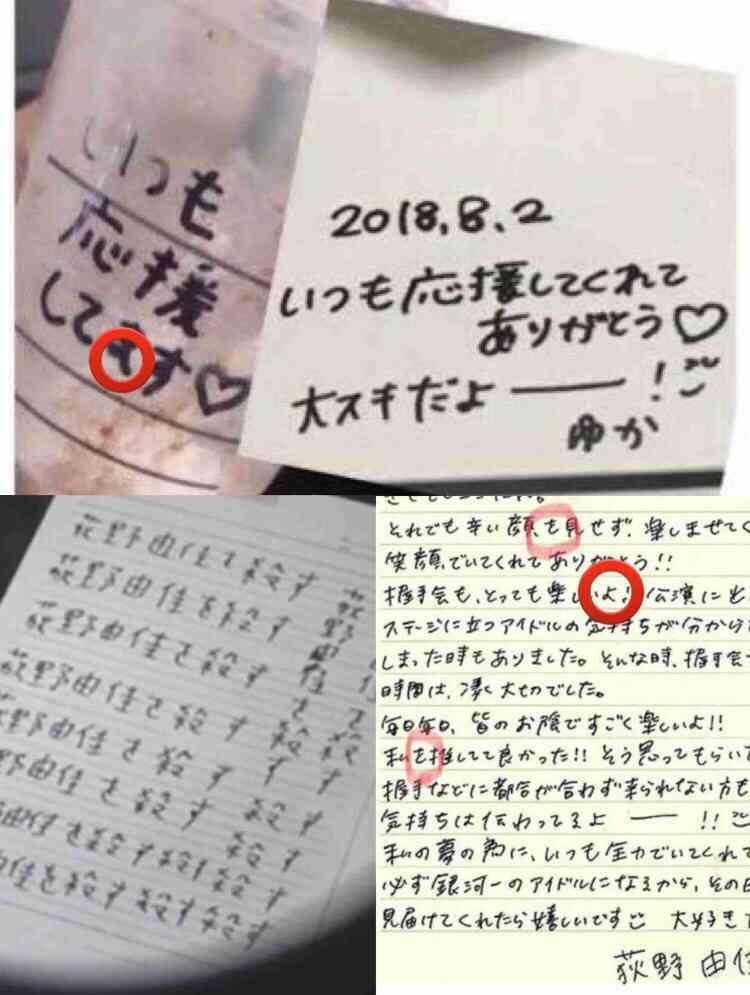 いつも
応援
してます♡
2018.8.2
いつも応援してくれて
ありがとう♡
大スキだよ――!
ゆか
荻野由佳を殺す
荻野由佳を殺す
荻野由佳を殺す
荻野由佳を殺す
荻野由佳を殺す
野由佳を殺す 殺す
由佳を殺す殺す殺す
佳を殺す殺す殺す
荻野由佳を殺す
それでも辛い顔を見せず、楽しませてく
笑顔でいてくれてありがとう!!
握手会も、とっても楽しいよ!公演にと
ステージに立つアイドルの気持ちが分から
しまった時もありました。そんな時、握手会
時間は、凄く大切でした。
毎日毎日、皆のお陰ですごく楽しいよ!!
私を推してて良かった!!そう思ってもらい
握手などに都合が合わず来られない方も
気持ちは伝わってるよ――!!
私の夢の為に、いつも全力でいてくれて
必ず銀河一のアイドルになるから、その日
見届けてくれたら嬉しいです 大好き
荻野 由佳